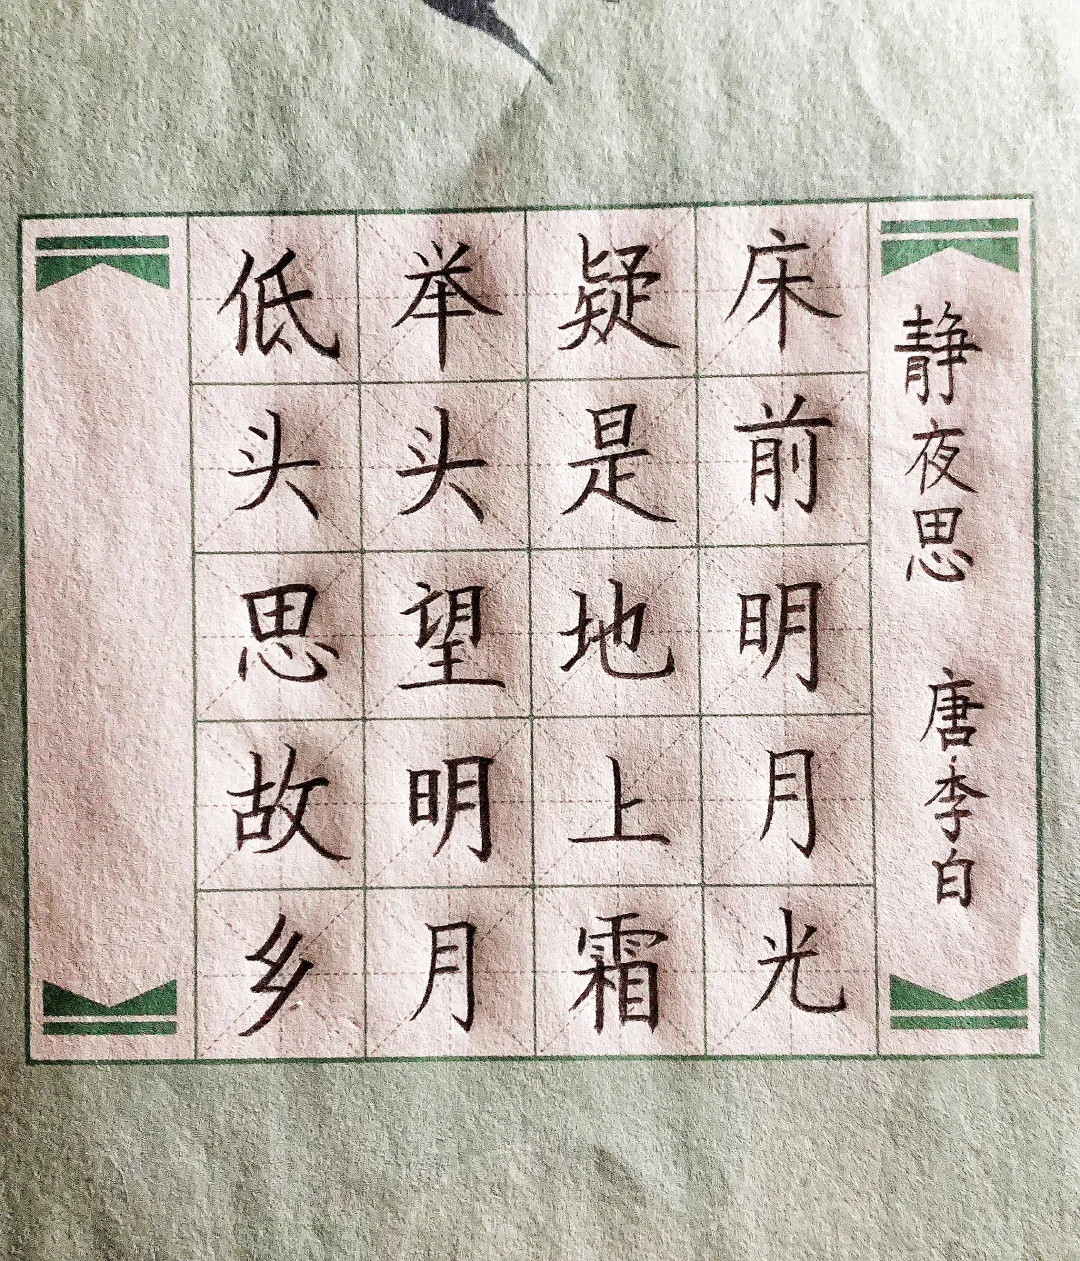 静夜思 唐李白
床前明月光
疑是地上霜
举头望明月
低头思故乡